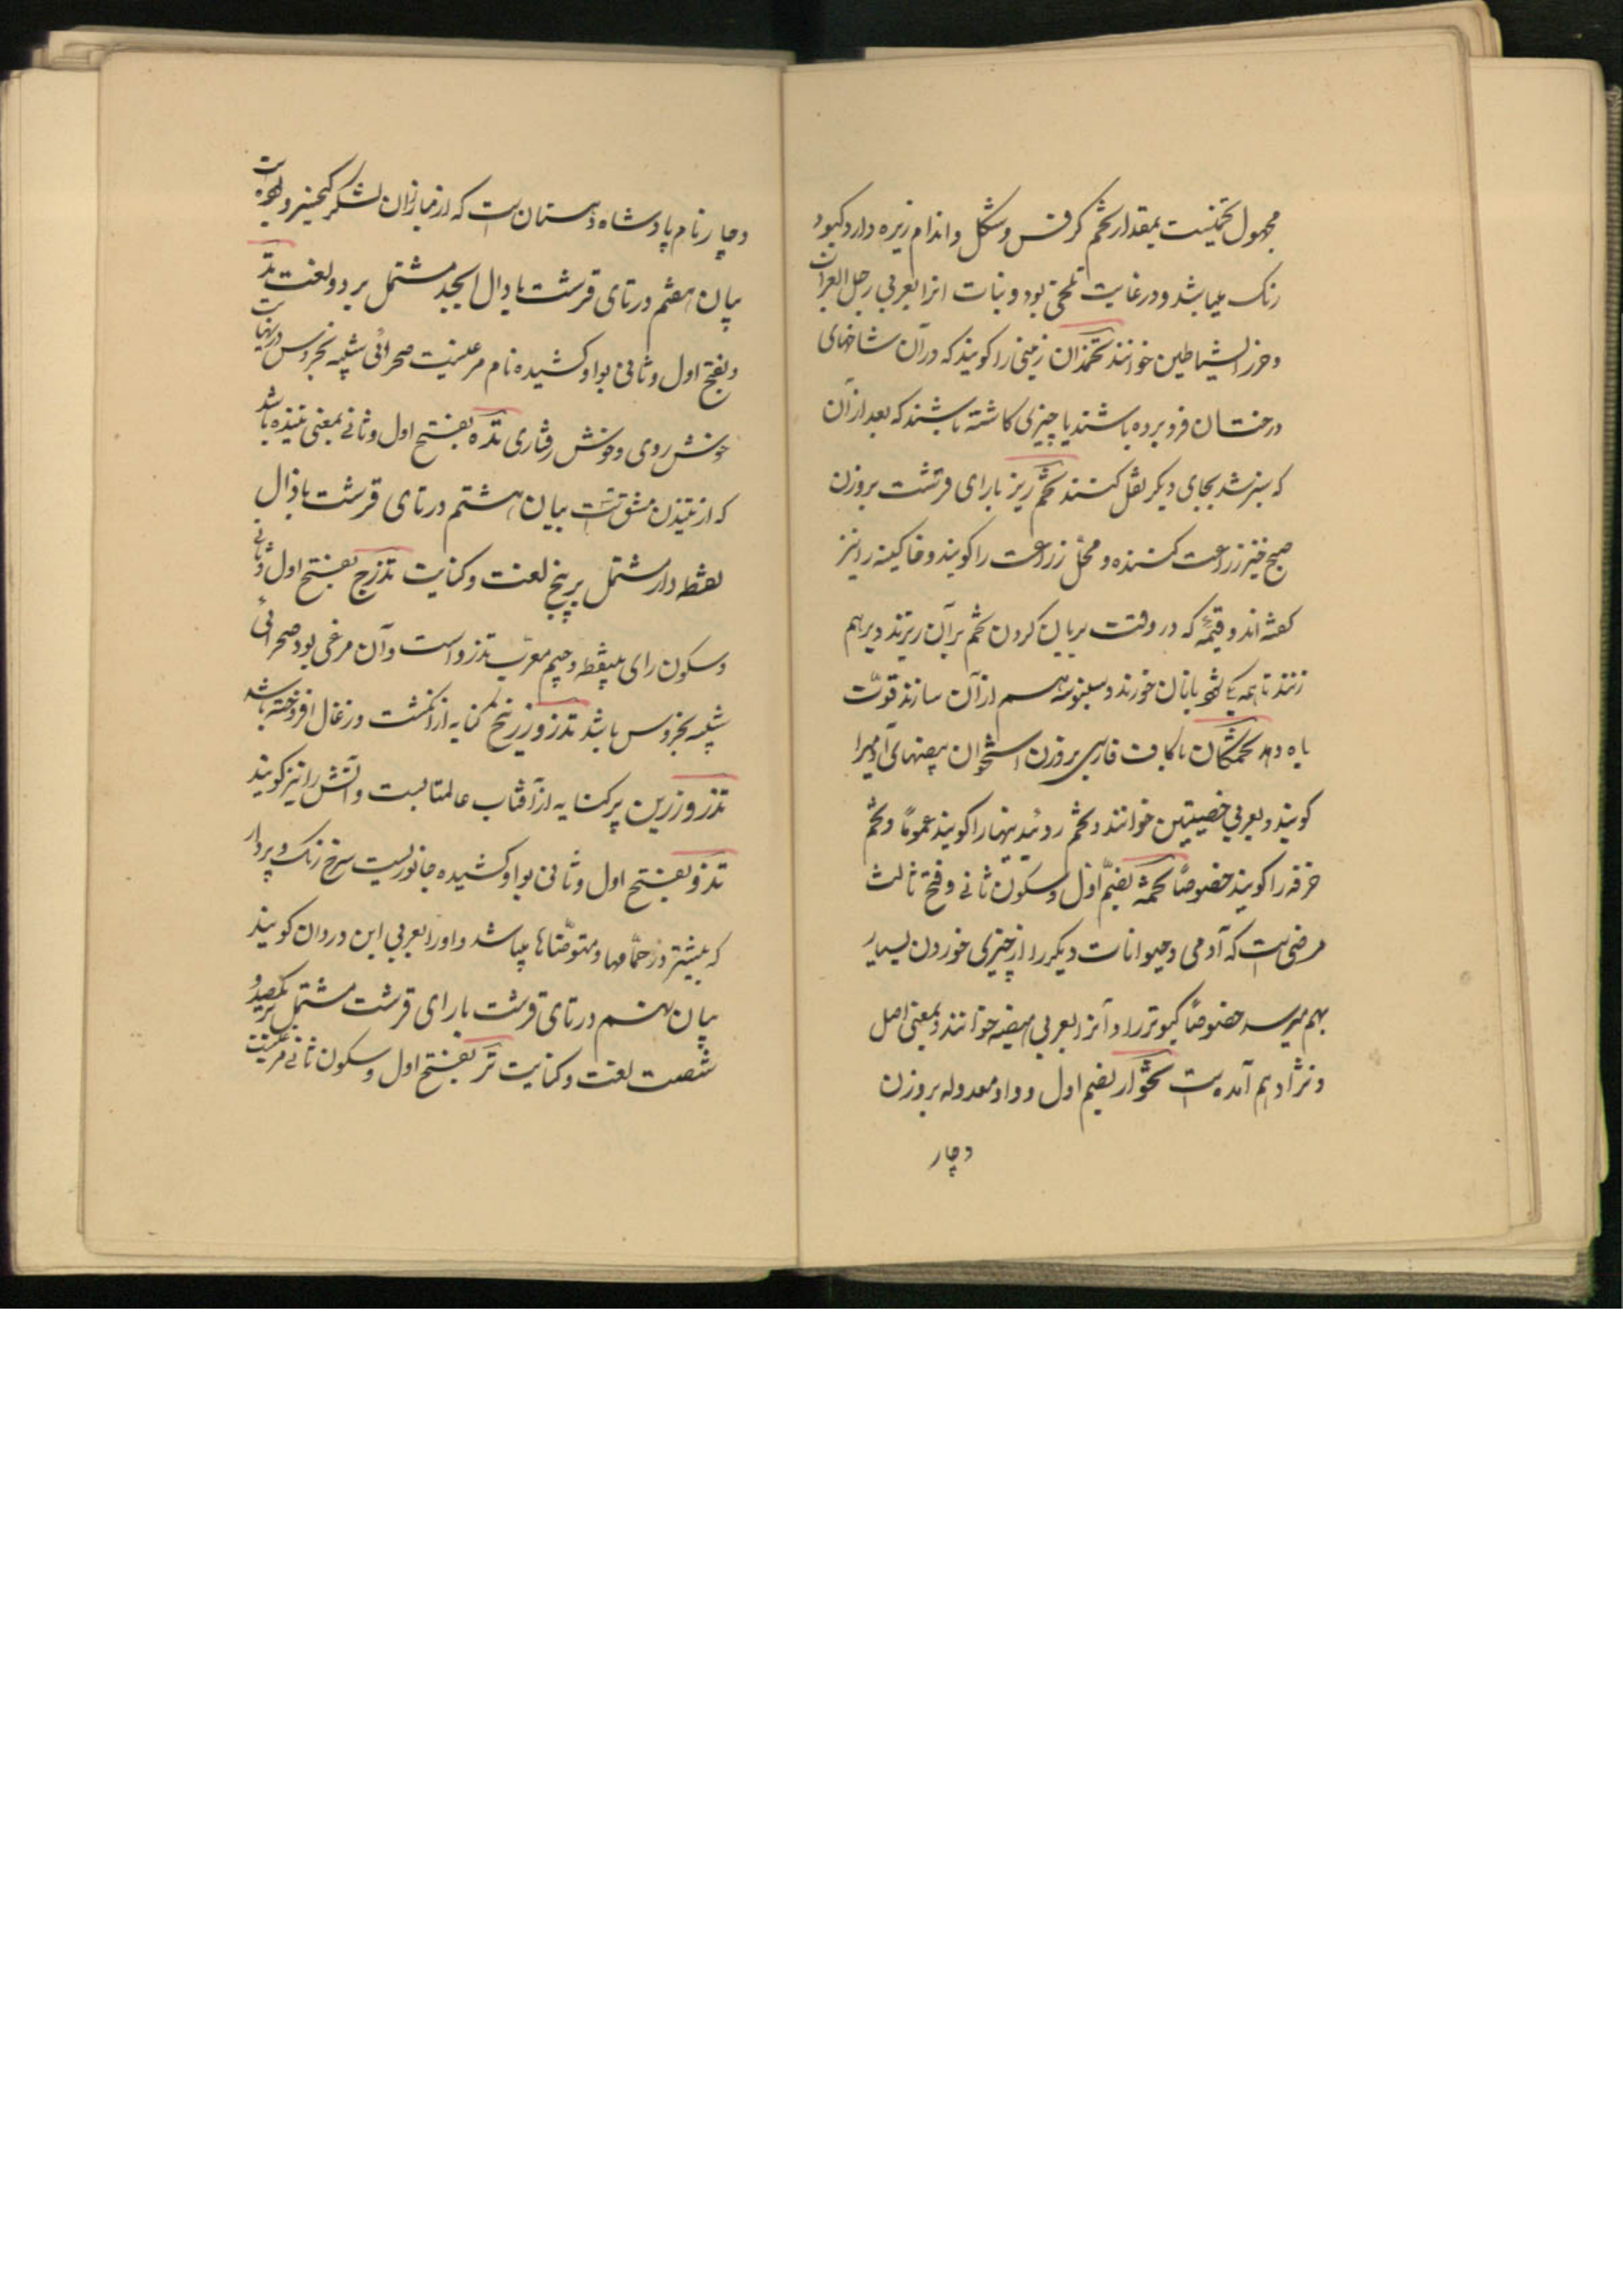 مجهول تخمیست بمقدار تخم کرفس و شکل و اندام زیره دارد و کبود
رنک میباشد و در غایت تلخی بود و نبات انرا بعربی رجل الغراب
و حرز الشیاطین خوانند تخمدان زمینی را کویند که در آن شاخهای
درختان فرو برده باشند یا چیزی کاشته باشند که بعد از آن
که سبز شد بجای دیکر نقل کنند تخم ریز با رای قرشت بروزن
صبح خیز زراعت کننده و محل زراعت را کویند و خاکینه را نیز
کفته اند و قیمهٔ که در وقت بریان کردن تخم برآن ریزند و برهم
زنند تا همه یکی شود با نان خورند و سنبوسه هم از آن سازند قوّت
باه دهد تخمکان با کاف فارسی بروزن استخوان بیضهای آدمیرا
کویند و بعربی خصیتین خوانند و تخم روئیدنیها را کویند عموماً و تخم
خرفه را کویند خصوصاً تخمه بضمّ اوّل و سکون ثانی و فتح ثالث
مرضی است که آدمی و حیوانات دیکر را از چیزی خوردن بسیار
بهم میرسد خصوصاً کبوتر را و آنرا بعربی هیضه خوانند و بمعنی اصل
و نژاد هم آمده است تخوار بضم اول و واو معدوله بروزن
دچار
دچار نام پادشاه دهستان است که از مبارزان لشکر کیخسرو بوده است
بیان هفتم در تای قرشت با دال ابجد مشتمل بر دو لغت تدو
و بفتح اول و ثانی بواو کشیده نام مرغیست صحرائی شبیه بخروس در نهایت
خوش روی و خوش رفتاری تده بفتح اول و ثانی بمعنی تنیده باشد
که از تنیدن مشتق است بیان هشتم در تای قرشت با ذال
نقطه دار مشتمل بر پنج لغت و کنایت تذرج بفتح اول و ثانی
و سکون رای بینقطه و جیم معرّب تذرو است و آن مرغی بود صحرائی
شبیه بخروس باشد تذرو زرنیخ کنایه از انکشت و زغال افروخته باشد
تذرو زرین پر کنایه از آفتاب عالمتابست و آتش را نیز کویند
تذو بفتح اول و ثانی بواو کشیده جانوریست سرخ رنک و پردار
که بیشتر در حمّامها و متوضّاها میباشد و او را بعربی ابن وردان کویند
بیان نهم در تای قرشت با رای قرشت مشتمل بر یکصد و
شصت لغت و کنایت تر بفتح اول و سکون ثانی مرغیست